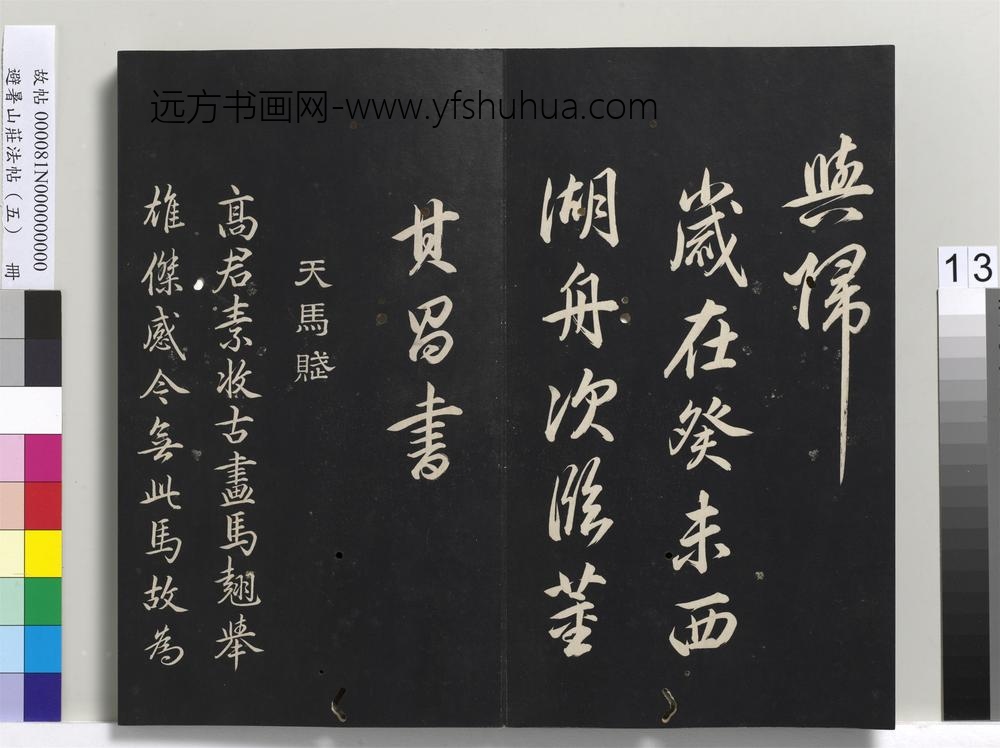 远方书画网-www.yfshuhua.com
與歸
歲在癸未西
湖舟次臨董
其昌書
天馬賦
高君素收古畫馬翹舉
雄傑感今無此馬故為
故帖 000081N000000000
避暑山莊法帖(五) 冊
13